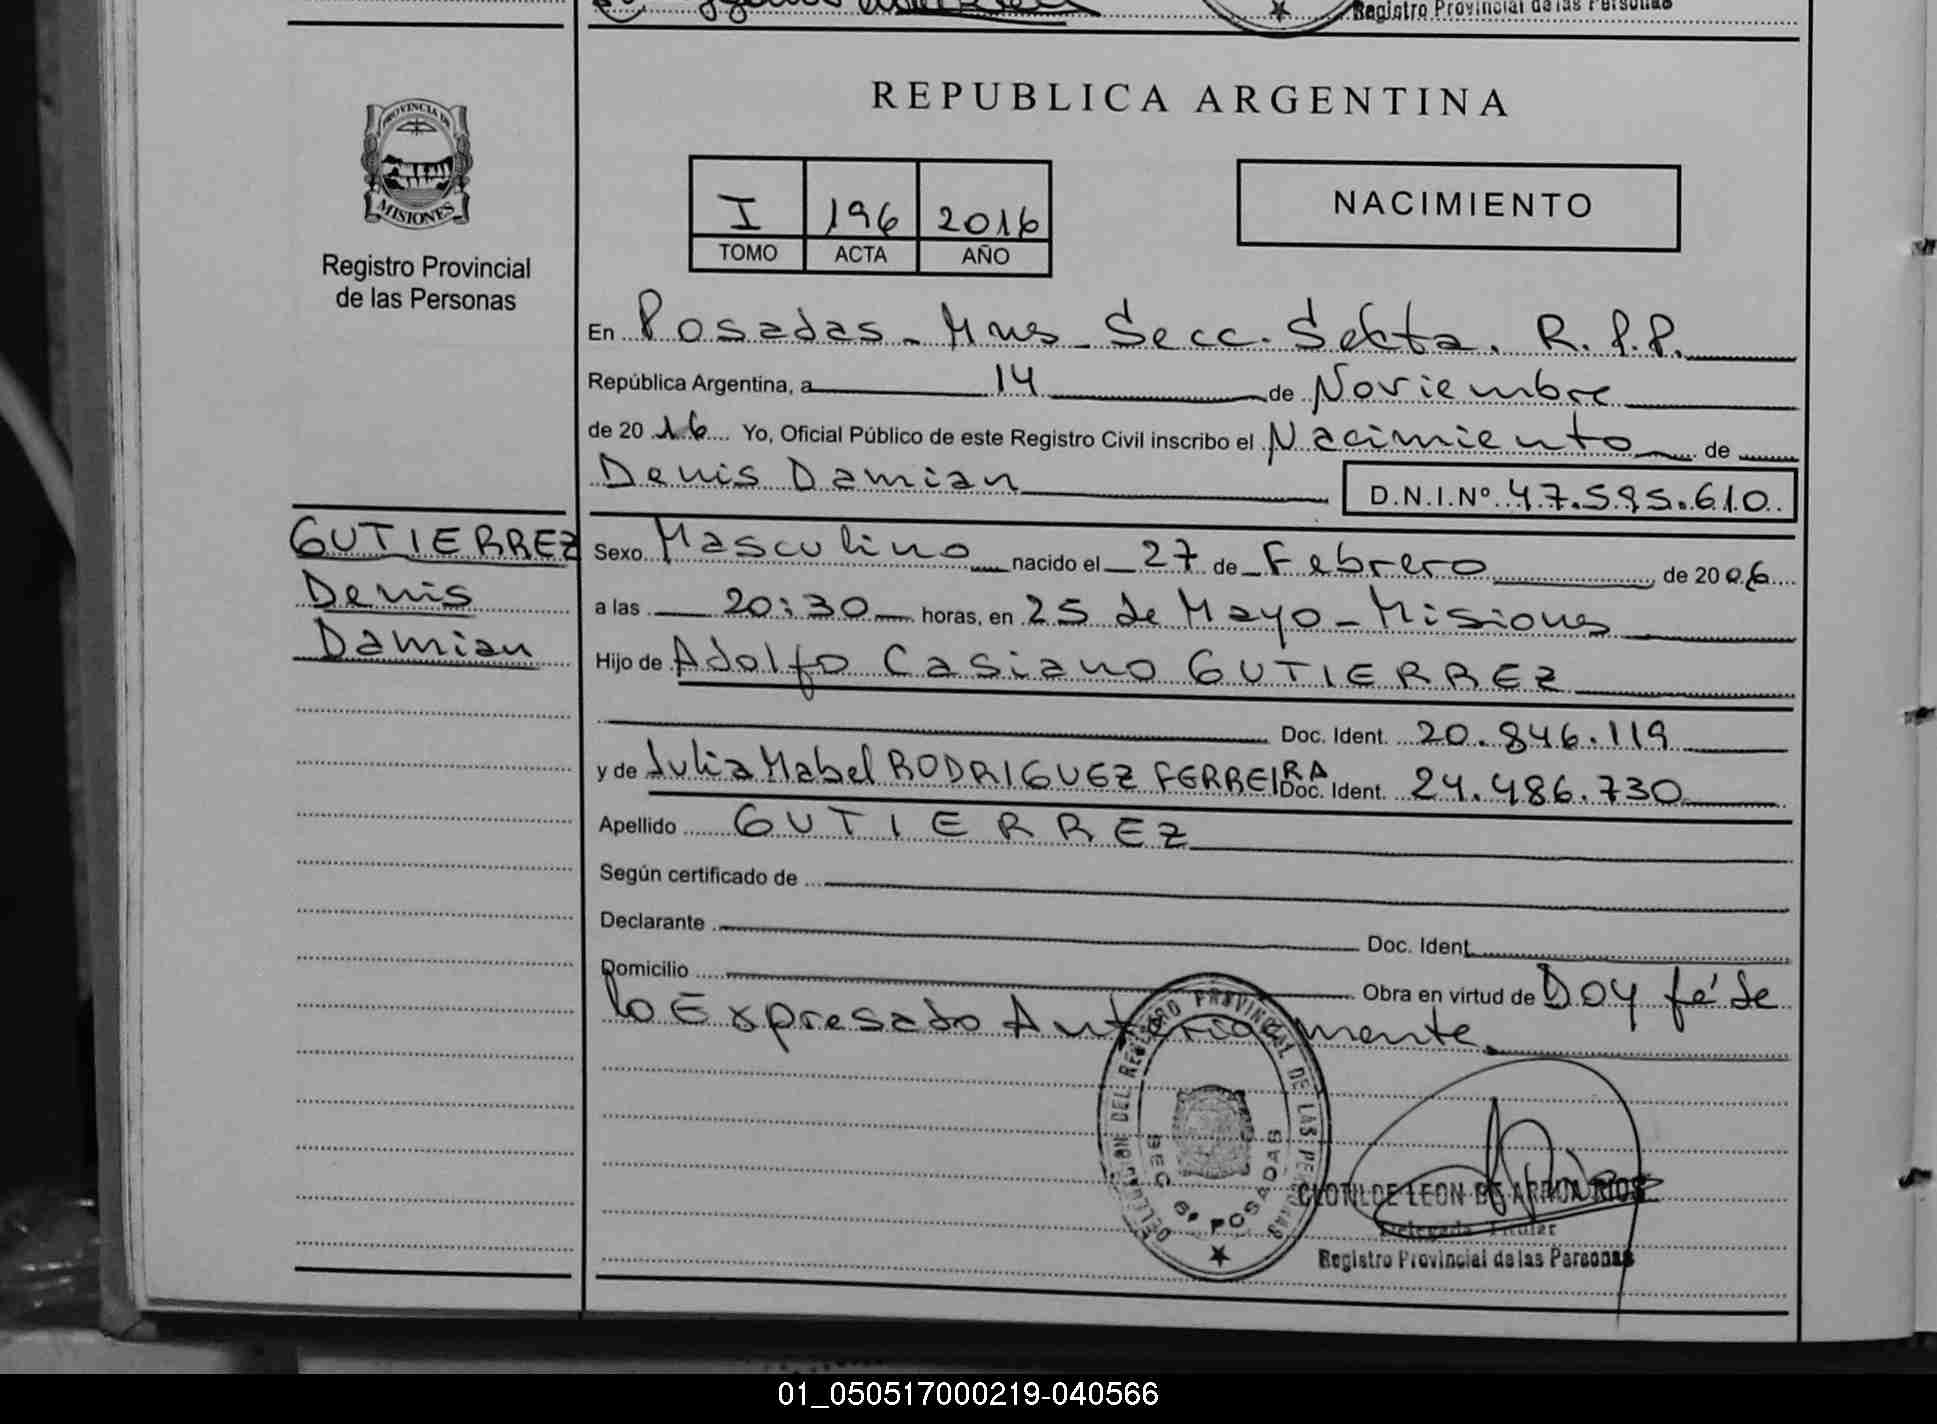 Registro Provincial de las Personas
PROVINCIA DE
MISIONES
Registro Provincial
de las Personas
REPUBLICA ARGENTINA
I 196 2016
TOMO ACTA AÑO
NACIMIENTO
En Posadas - Mnes - Secc. Sexta. R.P.P.
República Argentina, a 14 de Noviembre
de 2016 Yo, Oficial Público de este Registro Civil inscribo el Nacimiento de
Denis Damian D.N.I.Nº 47.595.610
GUTIERREZ
Denis
Damian
Sexo Masculino nacido el 27 de Febrero de 2006
a las 20:30 horas, en 25 de Mayo - Misiones
Hijo de Adolfo Casiano GUTIERREZ
Doc. Ident. 20.846.119
y de Julia Mabel RODRIGUEZ FERREIRA Doc. Ident. 24.486.730
Apellido GUTIERREZ
Según certificado de
Declarante Doc. Ident.
Domicilio Obra en virtud de Doy fé de
lo Expresado Anteriormente.
DELEGACION DEL REGISTRO PROVINCIAL DE LAS PERSONAS
SEC 6ª POSADAS
CLOTILDE LEON DE
Delegada Titular
Registro Provincial de las Personas
01_050517000219-040566